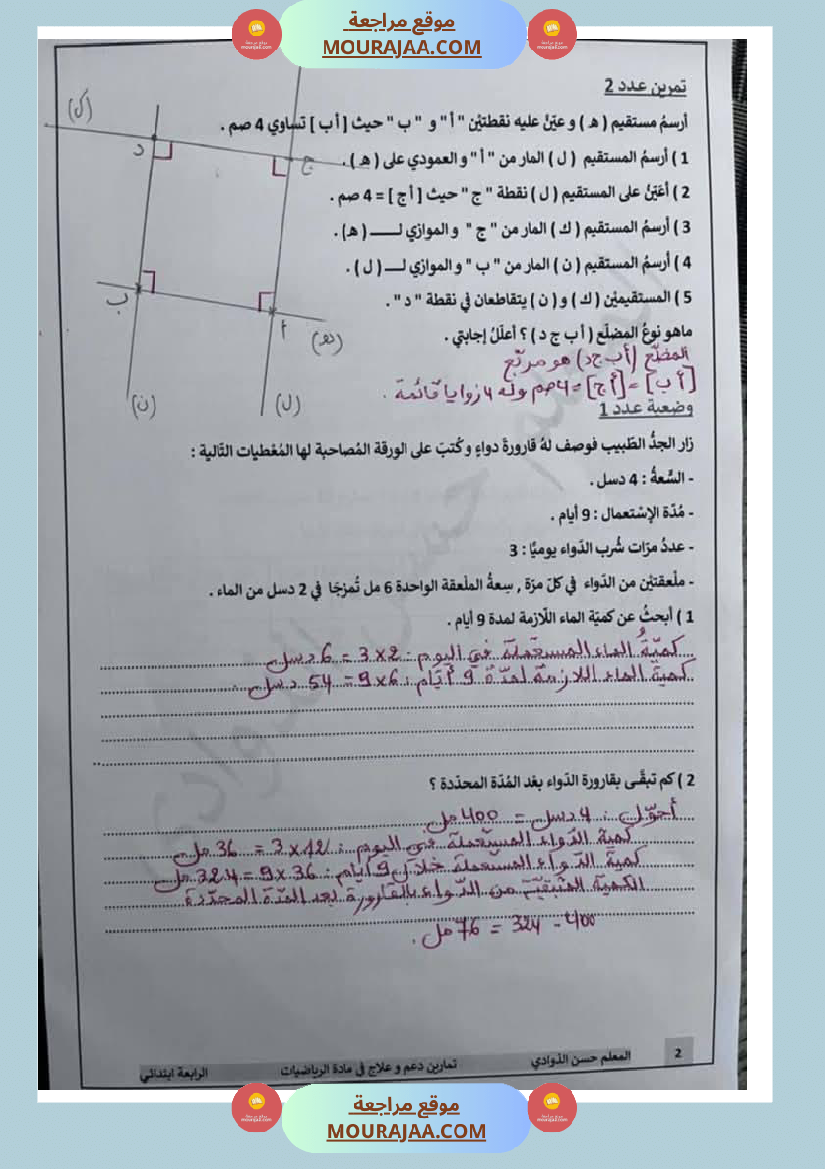 موقع مراجعة
MOURAJAA.COM
تمرين عدد 2
أرسمُ مستقيم ( هـ ) و عيّنْ عليه نقطتيْن " أ " و " ب " حيث [ أ ب ] تساوي 4 صم .
1 ) أرسمُ المستقيم ( ل ) المار من " أ " و العمودي على ( هـ ) .
2 ) أعَيّنُ على المستقيم ( ل ) نقطة " ج " حيث [ أ ج ] = 4 صم .
3 ) أرسمُ المستقيم ( ك ) المار من " ج " و الموازي لـــــ ( هـ) .
4 ) أرسمُ المستقيم ( ن ) المار من " ب " و الموازي لـــ ( ل ) .
5 ) المستقيميْن ( ك ) و ( ن ) يتقاطعان في نقطة " د " .
ماهو نوعُ المضلّع ( أ ب ج د ) ؟ أعلّلُ إجابتي .
(ك)
د
ج
ب
أ
(هـ)
(ن)
(ل)
المضلّع (أ ب ج د) هو مربّع
[أ ب] = [أ ج] = 4 صم وله 4 زوايا قائمة .
وضعية عدد 1
زار الجدُّ الطّبيب فوصف لهُ قارورةَ دواءٍ و كُتبَ على الورقة المُصاحبة لها المُعْطيات التّالية :
- السّعةُ : 4 دسل .
- مُدّة الإسْتعمال : 9 أيام .
- عددُ مرّات شُرب الدّواء يوميًّا : 3
- ملْعقتيْن من الدّواء في كلّ مرّة , سِعةُ الملْعقة الواحدة 6 مل تُمزجَا في 2 دسل من الماء .
1 ) أبحثُ عن كميّة الماء اللّازمة لمدة 9 أيام .
كميّةُ الماء المستعملة في اليوم : 2 × 3 = 6 دسل
كمية الماء اللازمة لمدّة 9 أيّام : 6 × 9 = 54 دسل .
2 ) كم تبقّى بقارورة الدّواء بعْد المُدّة المحدّدة ؟
أحوّل : 4 دسل = 400 مل
كمية الدّواء المستعملة في اليوم : 12 × 3 = 36 مل
كمية الدّواء المستعملة خلال 9 أيام : 36 × 9 = 324 مل
الكمية المتبقيّة من الدّواء بالقارورة بعد المدّة المحدّدة
400 - 324 = 76 مل .
2
المعلم حسن الذوادي
تمارين دعم و علاج في مادة الرياضيات
الرابعة ابتدائي
موقع مراجعة
MOURAJAA.COM